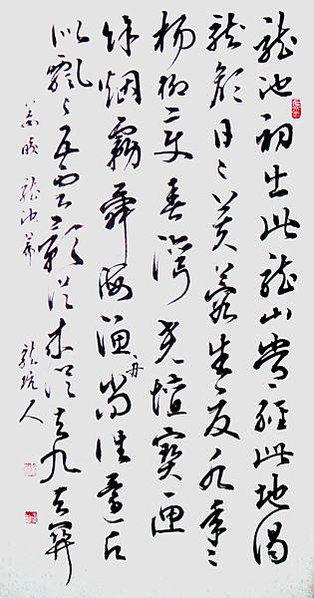 龍池初出此龍山常經此地謁
龍顏日々芙蓉生夏水年々
楊柳變春灣堯壇寶匣
餘烟霧舜海漁舟尚往還願
似飄々五雲影從來從去九天關
姜晞 龍池篇 龍坑人